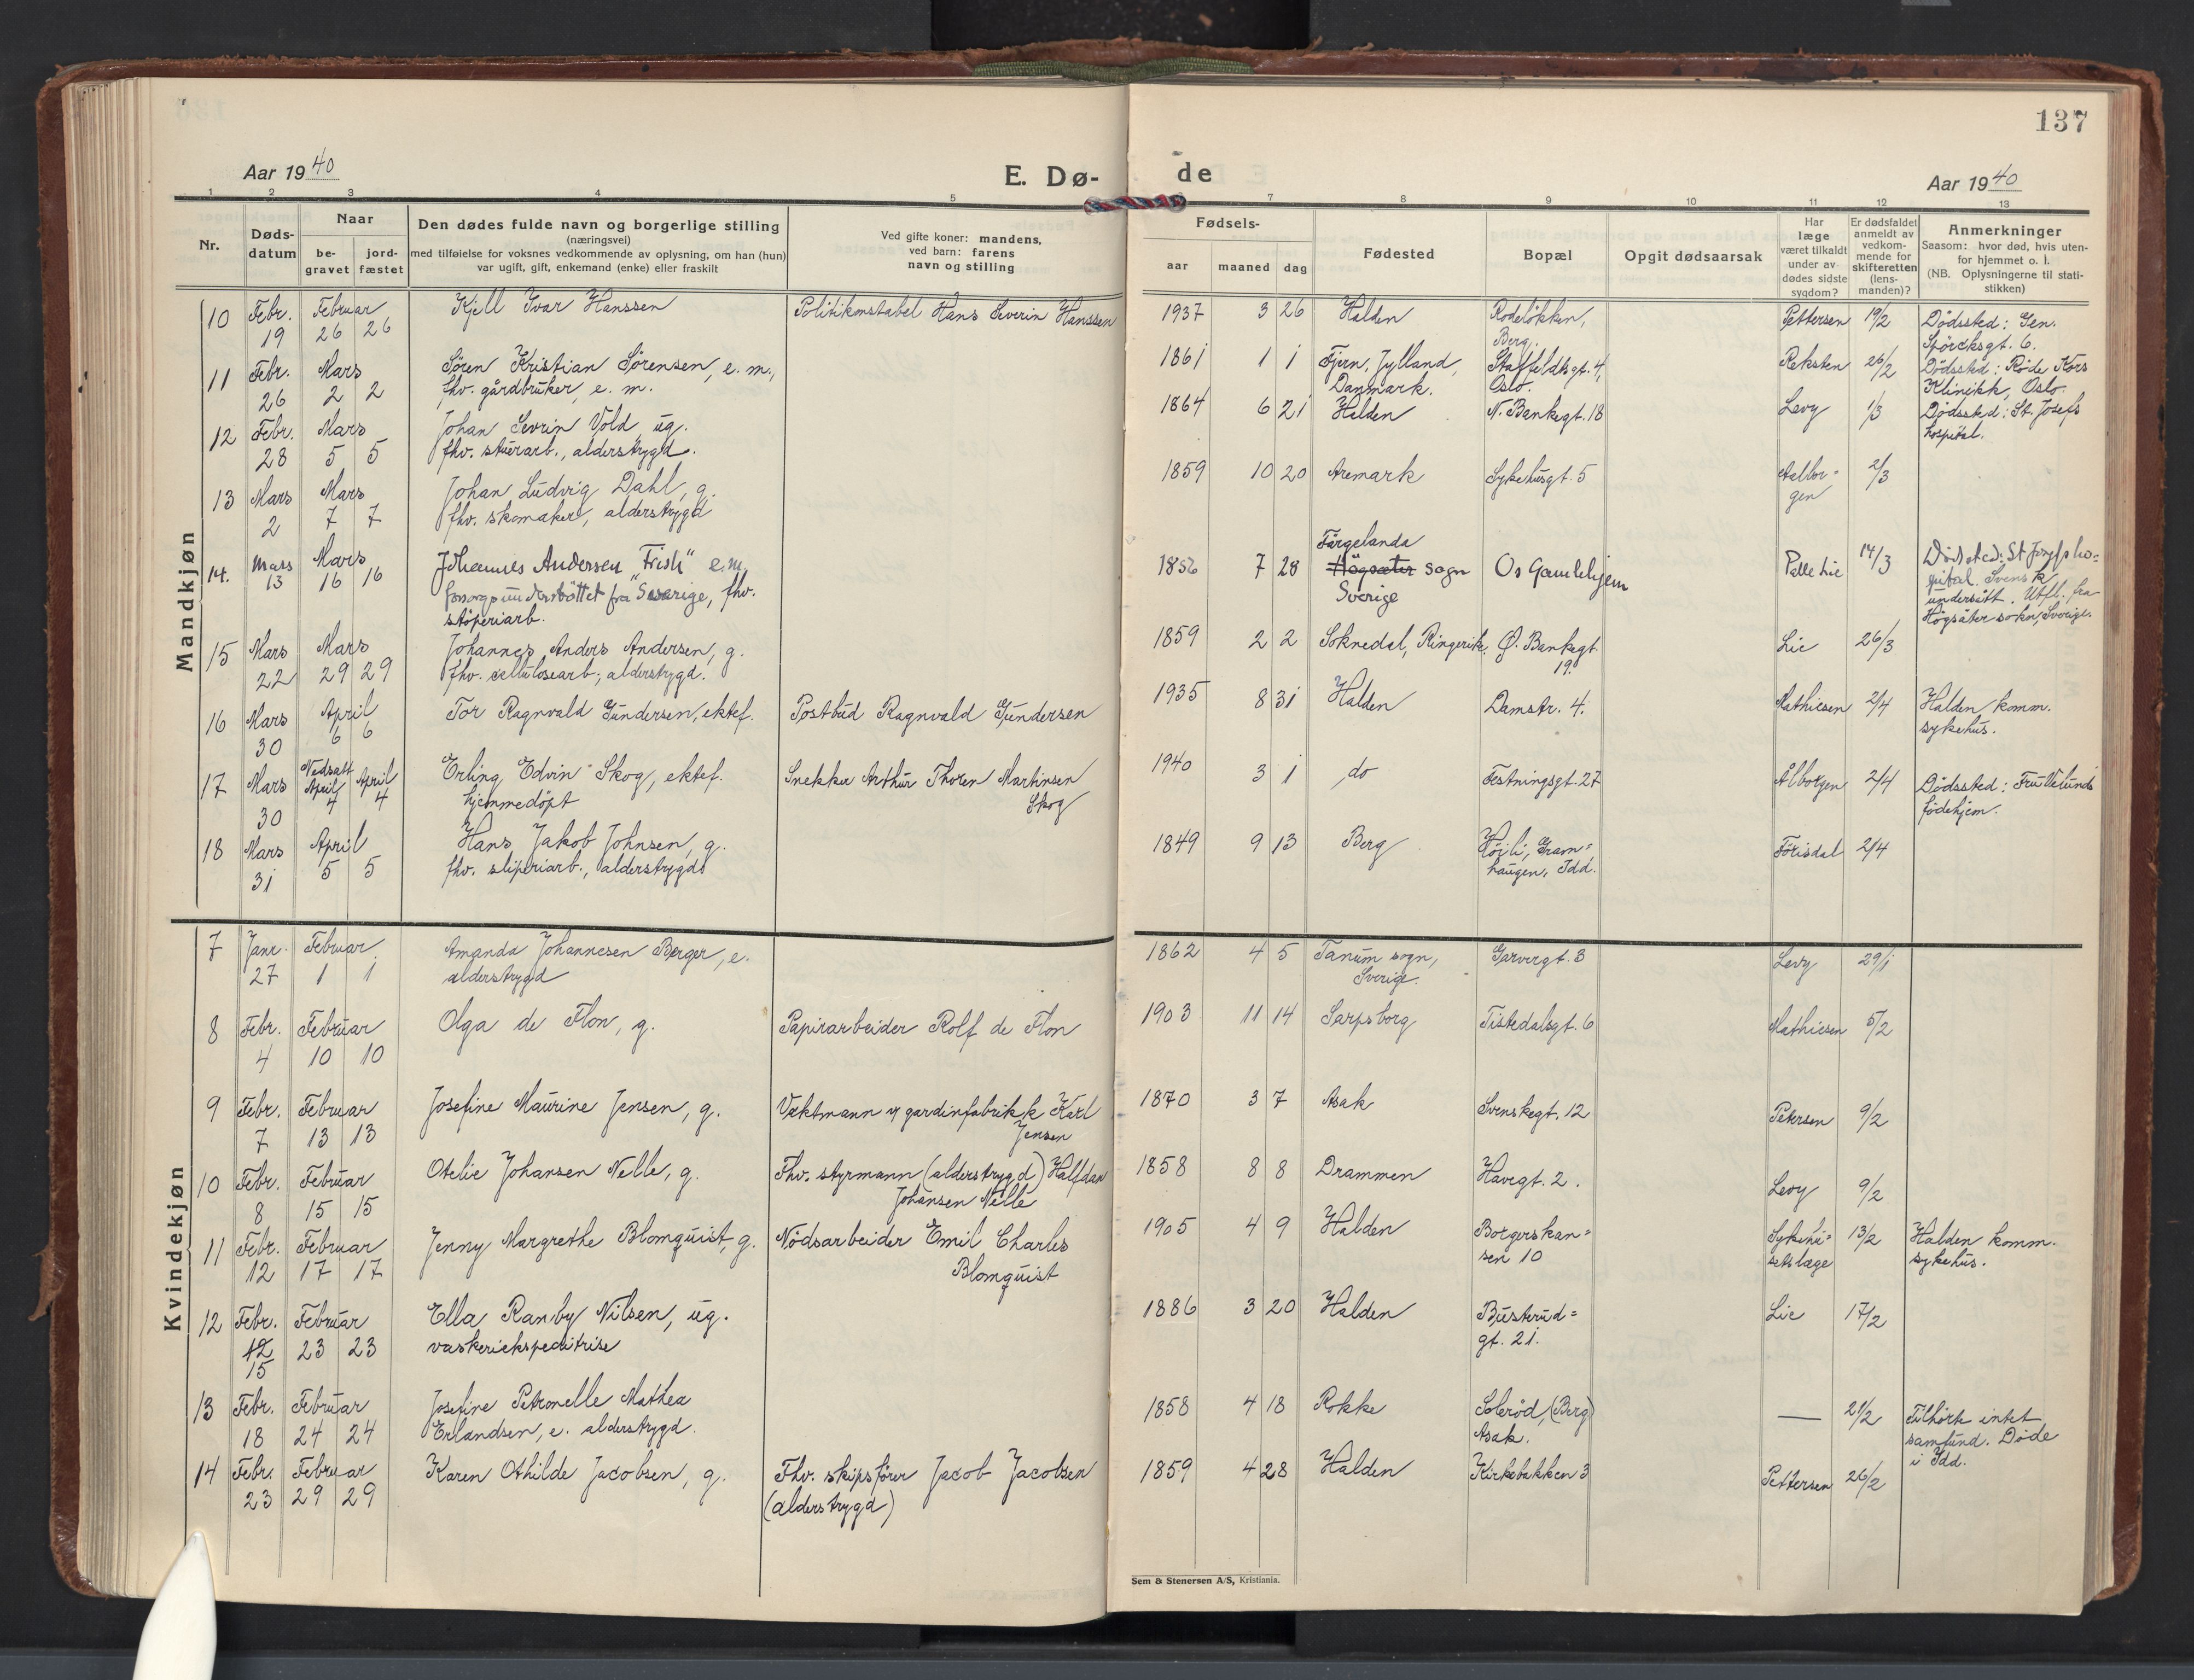 137
Aar 1940
E. Dø-
de
Aar 1940
1 2 3 4 5 7 8 9 10 11 12 13
Nr.
Døds-
datum
Naar
be-
gravet
jord-
fæstet
Den dødes fulde navn og borgerlige stilling
(næringsvei)
med tilføielse for voksnes vedkommende av oplysning, om han (hun)
var ugift, gift, enkemand (enke) eller fraskilt
Ved gifte koner: mandens,
ved barn: farens
navn og stilling
Fødsels-
aar maaned dag
Fødested
Bopæl
Opgit dødsaarsak
Har
læge
været tilkaldt
under av
dødes sidste
sygdom?
Er dødsfaldet
anmeldt av
vedkom-
mende for
skifteretten
(lens-
manden)?
Anmerkninger
Saasom: hvor død, hvis uten-
for hjemmet o. l.
(NB. Oplysningerne til stati-
stikken)
Mandkjøn
10 Febr. Februar Kjell Ivar Hanssen Politikonstabel Hans Severin Hanssen 1937 3 26 Halden Rodeløkken, Pettersen 19/2 Dødssted: Gen.
19 26 26 Berg. Spörcksgt. 6.
11 Febr. Mars Søren Kristian Sørensen, e. m., 1861 1 1 Fjern, Jylland, Staffeldtsgt. 4, Reksten 26/2 Dødssted: Røde Kors
26 2 2 fhv. gårdbruker, e. m. Danmark. Oslo. Klinikk, Oslo.
12 Febr. Mars Johan Sevrin Vold, ug. 1864 6 21 Halden N. Bankegt. 18 Levy 1/3 Dødssted: St. Josefs
28 5 5 fhv. stuerarb., alderstrygd. hospital.
13 Mars Mars Johan Ludvig Dahl, g. 1859 10 20 Aremark Sykehusgt. 5 Aalbor- 2/3
2 7 7 fhv. skomaker, alderstrygd gen
14. Mars Mars Johannes Andersen "Frish" e.m. 1856 7 28 Färgelanda Os Gamlehjem Palle Lie 14/3 Dødsted: St Josefs ho-
13 16 16 forsorgsunderstöttet fra Sverige, fhv. Högsäter sogn pital. Svensk
støperiarb. Sverige undersått. Utfl. fra
Högsäter sokn, Sverige.
15 Mars Mars Johannes Anders Andersen, g. 1859 2 2 Soknedal, Ringerike. Ø. Bankegt. Lie 26/3
22 29 29 fhv. cellulosearb., alderstrygd. 19.
16 Mars April Tor Ragnvald Gundersen, ektef. Postbud Ragnvald Gundersen 1935 8 31 Halden Damstr. 4. Mathiesen 2/4 Halden komm.
30 6 6 sykehus.
17 Mars Nedsatt April April Erling Edvin Skog, ektef. Snekker Arthur Thoren Martinsen 1940 3 1 do Festningsgt. 27 Ålborgen 2/4 Dødssted: Fru Welunds
30 4 4 hjemmedøpt Skog fødehjem.
18 Mars April Hans Jakob Johnsen, g. 1849 9 13 Berg Høili, Gram- Forisdal 2/4
31 5 5 fhv. sliperiarb., alderstrygd haugen, Idd.
Kvindekjøn
7 Janr. Februar Amanda Johannesen Berger, e. 1862 4 5 Tanum sogn, Garvergt. 3 Levy 29/1
27 1 1 alderstrygd Sverige.
8 Febr. Februar Olga de Flon, g. Papirarbeider Rolf de Flon 1903 11 14 Sarpsborg Tistedalsgt. 6 Mathiesen 5/2
4 10 10
9 Febr. Februar Josefine Maurine Jensen, g. Vaktmann v/ gardinfabrikk Karl 1870 3 7 Asak Svenskegt. 12 Petersen 9/2
7 13 13 Jensen
10 Febr. Februar Otelie Johansen Nelle, g. Fhv. styrmann (alderstrygd) Halfdan 1858 8 8 Drammen Havegt. 2. Levy 9/2
8 15 15 Johansen Nelle
11 Febr. Februar Jenny Margrethe Blomquist, g. Nødsarbeider Emil Charles 1905 4 9 Halden Borgerskan- Sykehu- 13/2 Halden komm.
12 17 17 Blomquist sen 10 setslæge sykehus.
12 Febr. Februar Ella Ranby Nilsen, ug. 1886 3 20 Halden Busterud- Lie 17/2
12 23 23 vaskeriekspeditrise gt. 21.
15
13 Febr. Februar Josefine Petronelle Mathea 1858 4 18 Rokke Solerød, (Berg) — 21/2 Tilhørte intet
18 24 24 Erlandsen, e. alderstrygd. Asak. samfund. Døde
i Idd.
14 Febr. Februar Karen Othilde Jacobsen, g. Fhv. skipsfører Jacob Jacobsen 1859 4 28 Halden Kirkebakken 3 Pettersen 26/2
23 29 29 (alderstrygd)
Sem & Stenersen A/S, Kristiania.